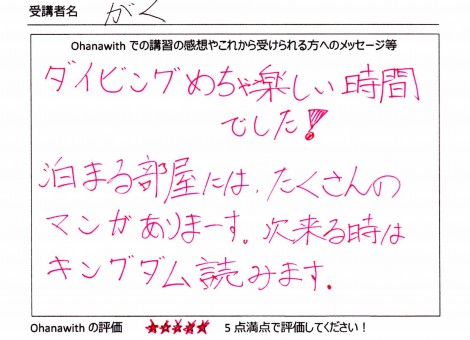 受講者名 がく
Ohanawith での講習の感想やこれから受けられる方へのメッセージ等
ダイビングめちゃ楽しい時間
でした!
泊まる部屋には、たくさんの
マンガありまーす。次来る時は
キングダム読みます。
Ohanawith の評価 ★★★★★ 5 点満点で評価してください！